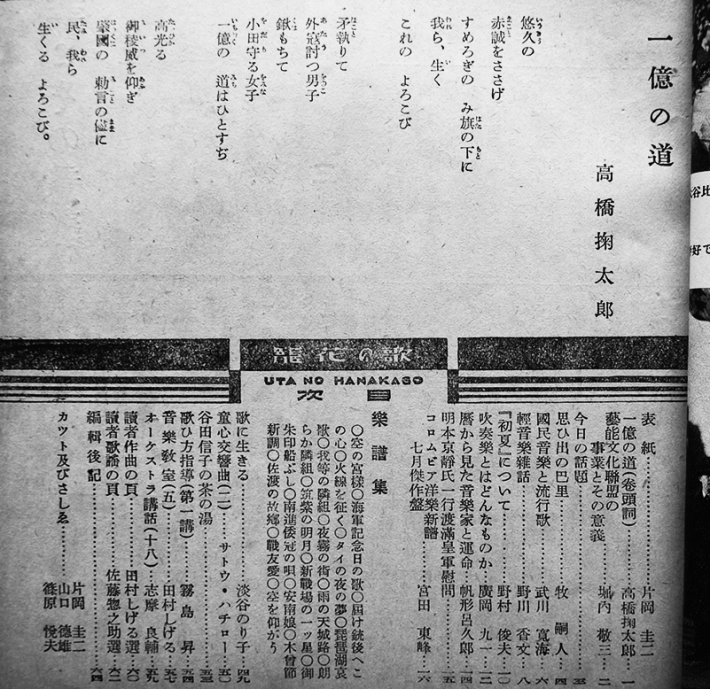 一億の道
高橋掬太郎
悠久の
赤誠をささげ
すめろぎの み旗の下に
我ら、生く
これの よろこび
矛執りて
外寇討つ男子
鍬もちて
小田守る女子
一億の 道はひとすぢ
高光る
御稜威を仰ぎ
肇國の 勅言の儘に
民、我ら
生くる よろこび。
歌の花籠
UTA NO HANAKAGO
目次
表紙 片岡圭二
一億の道(巻頭詞) 高橋掬太郎 一
藝能文化聯盟の事業とその意義 堀內敬三 二
今日の話題 三
思ひ出の巴里 牧嗣人 四
國民音樂と流行歌 武川寛海 六
輕音樂雜話 野川香文 八
『初夏』について 野村俊夫 一〇
吹奏樂とはどんなものか 廣岡九一 一二
曆から見た音樂家と運命 帆形呂久郎 一四
明本京靜氏一行渡滿皇軍慰問 一五
コロムビア洋樂新譜七月傑作盤 宮田東峰 一六
樂譜集
〇空の宮樣〇海軍記念日の歌〇屆け銃後へこ
の心〇火線を征く〇タイの夜の夢〇琵琶湖哀
歌〇我等の隣組〇夜霧の街〇雨の天城路〇朗
らか隣組〇筑紫の明月〇新戰場の一ツ星〇御
朱印船ぶし〇南進倭冠の唄〇安南娘〇木曾節
新調〇佐渡の故鄕〇戰友愛〇空を仰がう
歌に生きる 淡谷のり子 四九
童心交響曲(二) サトウ・ハチロー 五〇
谷田信子の茶の湯 五三
歌ひ方指導(第一講) 霧島昇 五四
音樂敎室(五) 田村しげる 五七
オーケストラ講話(十八) 志摩良輔 五九
讀者作曲の頁 田村しげる選 六一
讀者歌謠の頁 佐藤惣之助選 六二
編輯後記 六四
カット及びさしゑ 片岡圭二 山口德雄 篠原悅夫
谷比
好で